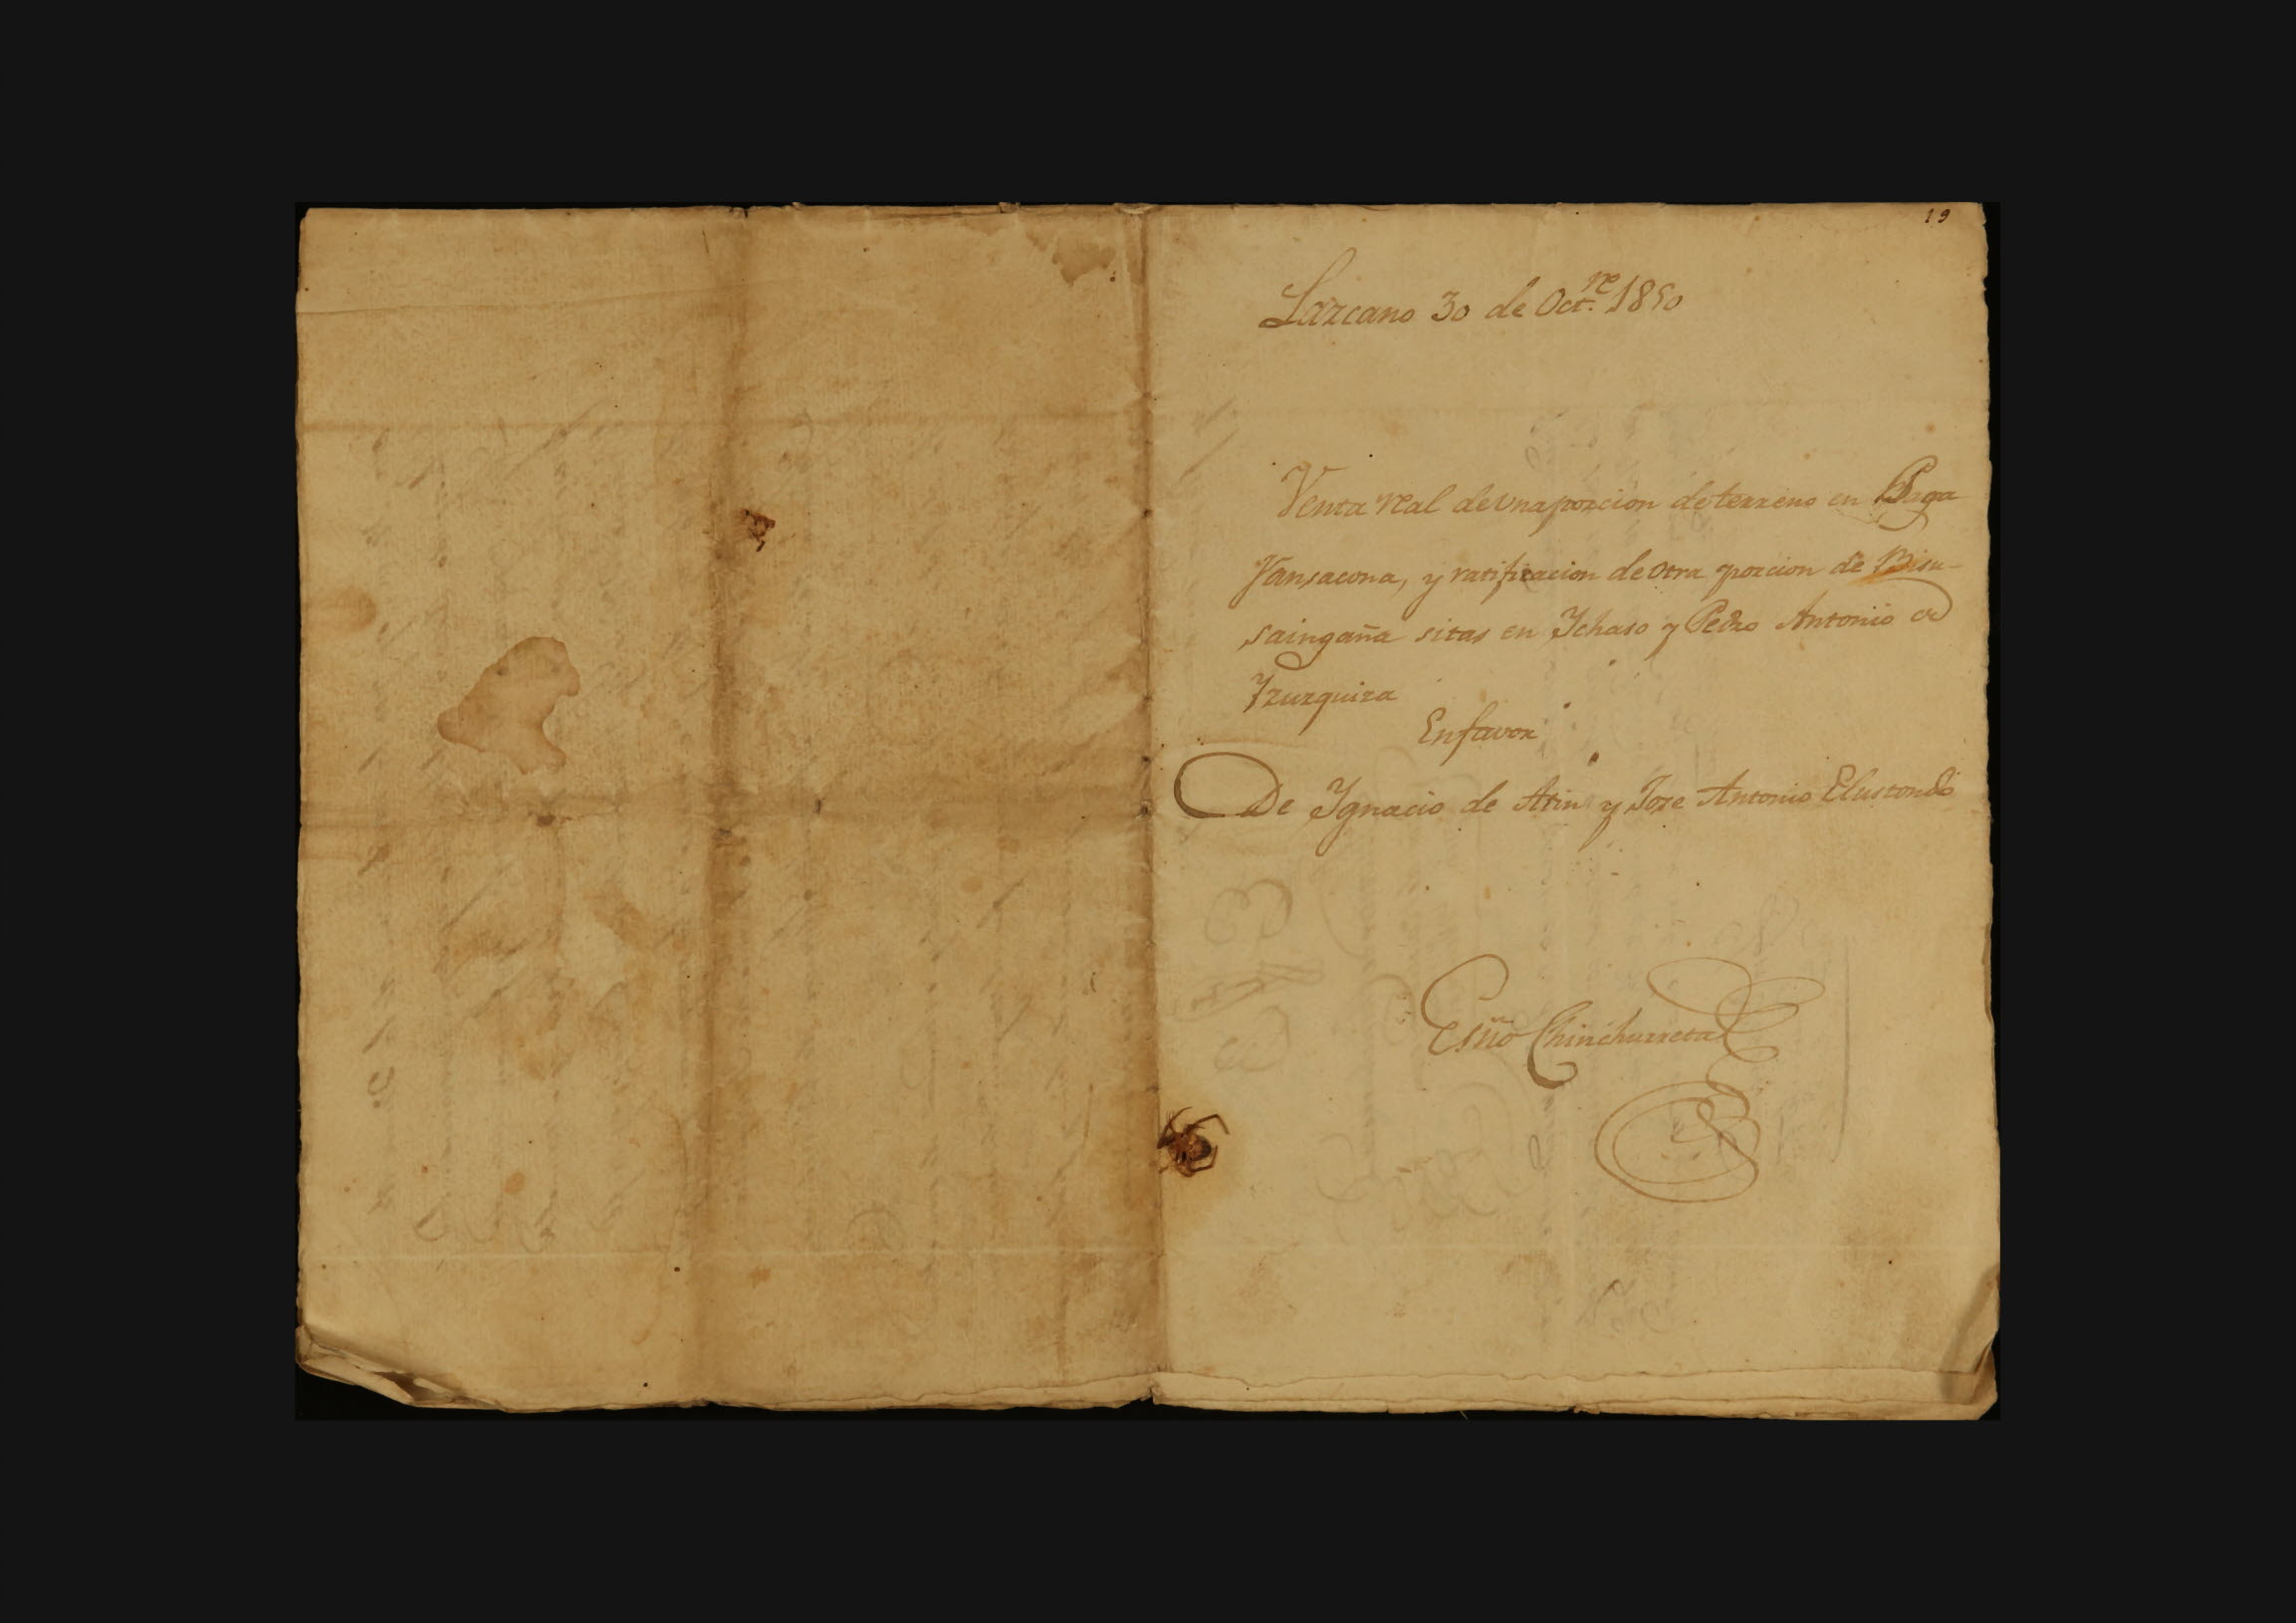 19
Lazcano 30 de Oct.re 1850
Venta real de vna porcion de terreno en Paga
Yansacona, y ratificacion de otra porcion de Bisu-
saingaña sitas en Ichaso y Pedro Antonio de
Yzurquiza
En favor
De Ignacio de Atin y Joze Antonio Elustondo
Esño Chinchurreta